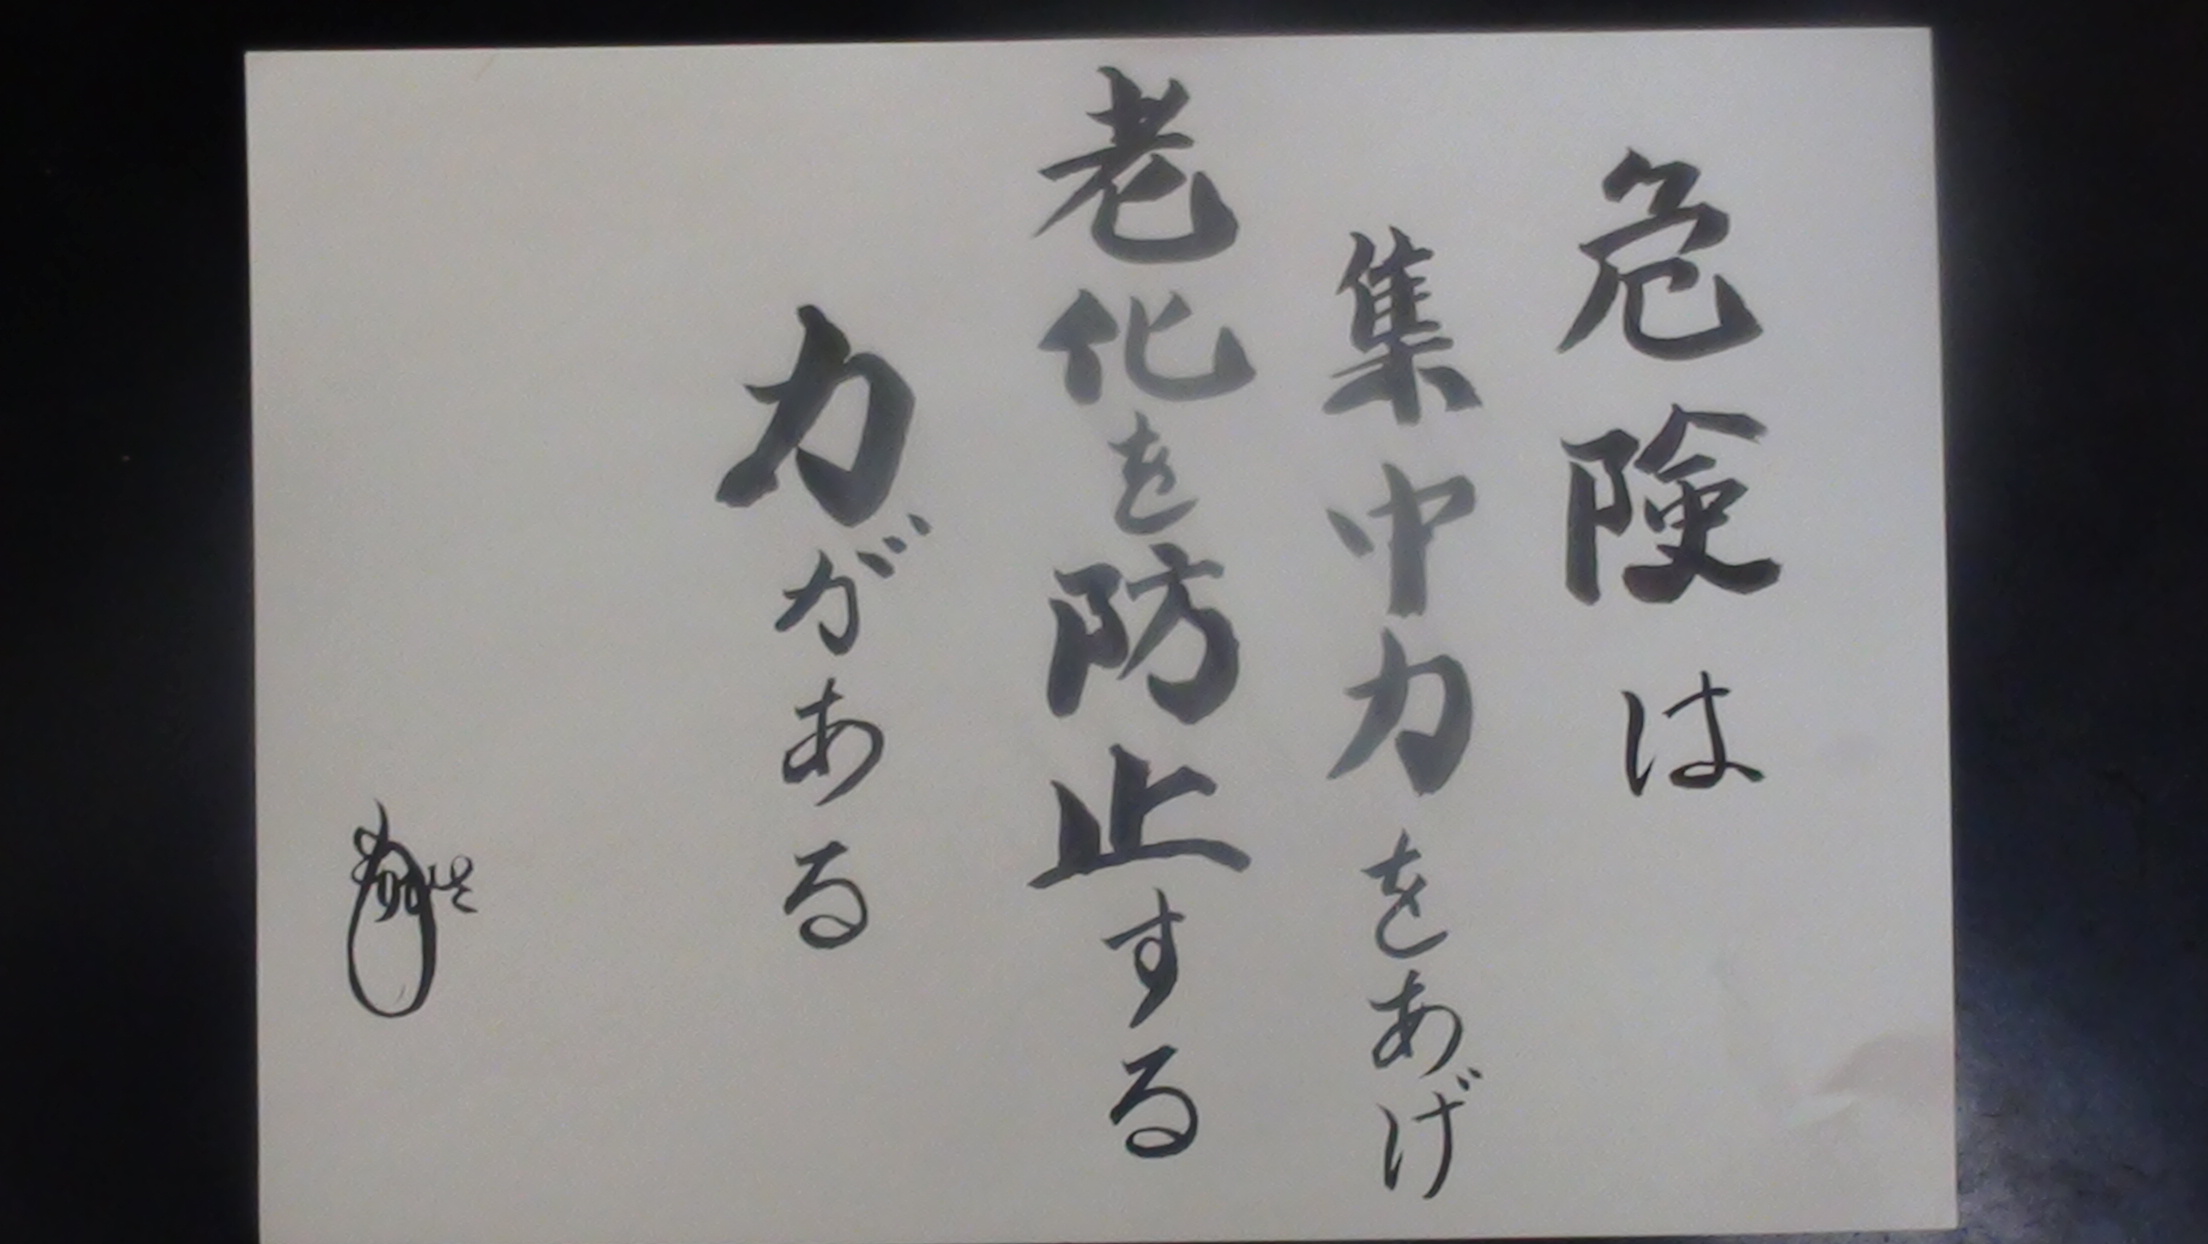 危険は
集中力をあげ
老化を防止する
力がある